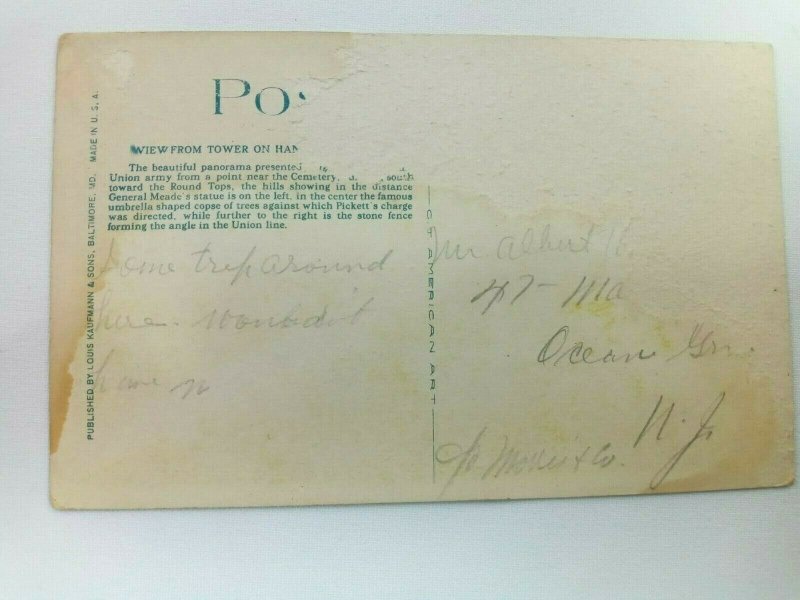 PUBLISHED BY LOUIS KAUFMANN & SONS, BALTIMORE, MD. MADE IN U. S. A.
Pos
VIEW FROM TOWER ON HAN
The beautiful panorama presented
Union army from a point near the Cemetery, south
toward the Round Tops, the hills showing in the distance
General Meade's statue is on the left, in the center the famous
umbrella shaped copse of trees against which Pickett's charge
was directed, while further to the right is the stone fence
forming the angle in the Union line.
Some trip around
here. Wouldn't
have
CT AMERICAN ART
Mr Albert
47- Ma
Ocean Gro
N. J.
c/o & Co.